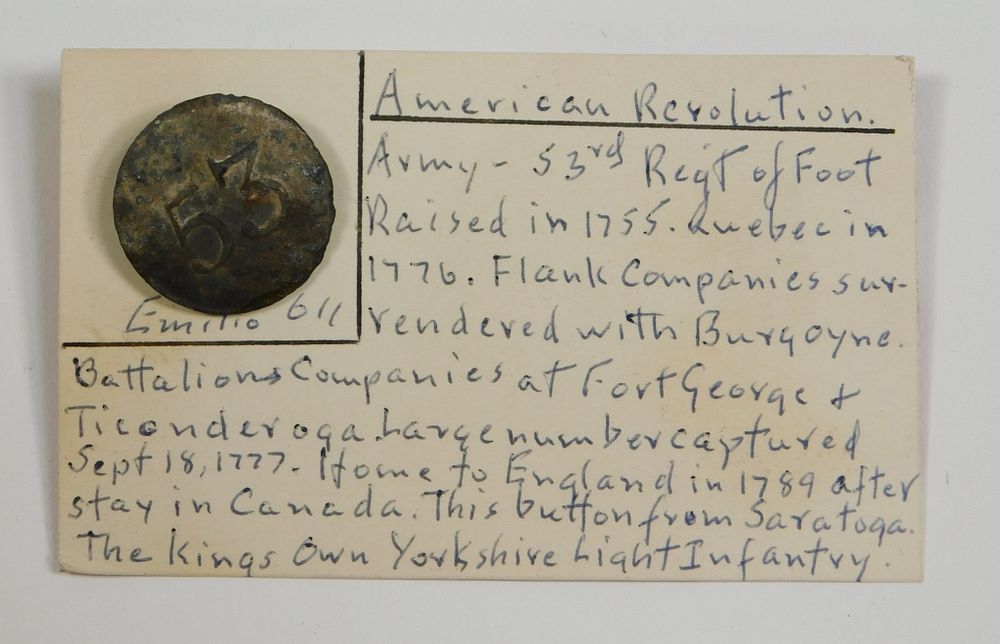 53
Emilio 611
American Revolution.
Army - 53rd Regt of Foot
Raised in 1755. Quebec in
1776. Flank Companies sur-
rendered with Burgoyne.
Battalions Companies at Fort George &
Ticonderoga. Large number captured
Sept 18, 1777. Home to England in 1789 after
stay in Canada. This button from Saratoga.
The Kings Own Yorkshire Light Infantry.